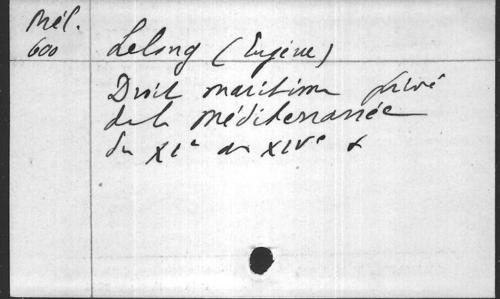 Mél.
600
Lelong (Eugène)
Droit maritime privé
de la Méditerranée
du XIe au XIVe s